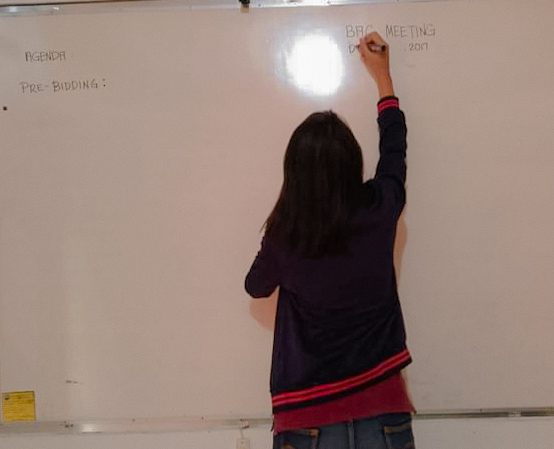 BAC MEETING
2017
AGENDA
PRE-BIDDING: